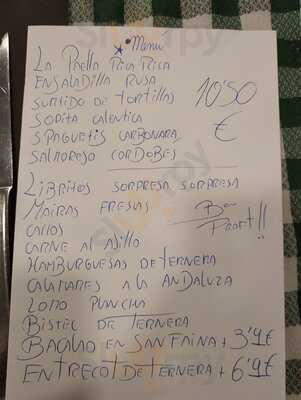 Menú
LA PAELLA RICA RICA
ENSALADILLA RUSA
SURTIDO DE TORTILLAS
SOPITA CALENTICA
SPAGUETIS CARBONARA
SALMOREJO CORDOBES
10'50
€
LIBRITOS SORPRESA SORPRESA
MAIRAS FRESAS
CALLOS
CARNE AL AJILLO
HAMBURGUESAS DE TERNERA
CALAMARES A LA ANDALUZA
LOMO PLANCHA
BISTEC DE TERNERA
BACALAO EN SANFAINA + 3'9€
ENTRECOT DE TERNERA + 6'9€
Bon
Profit!!